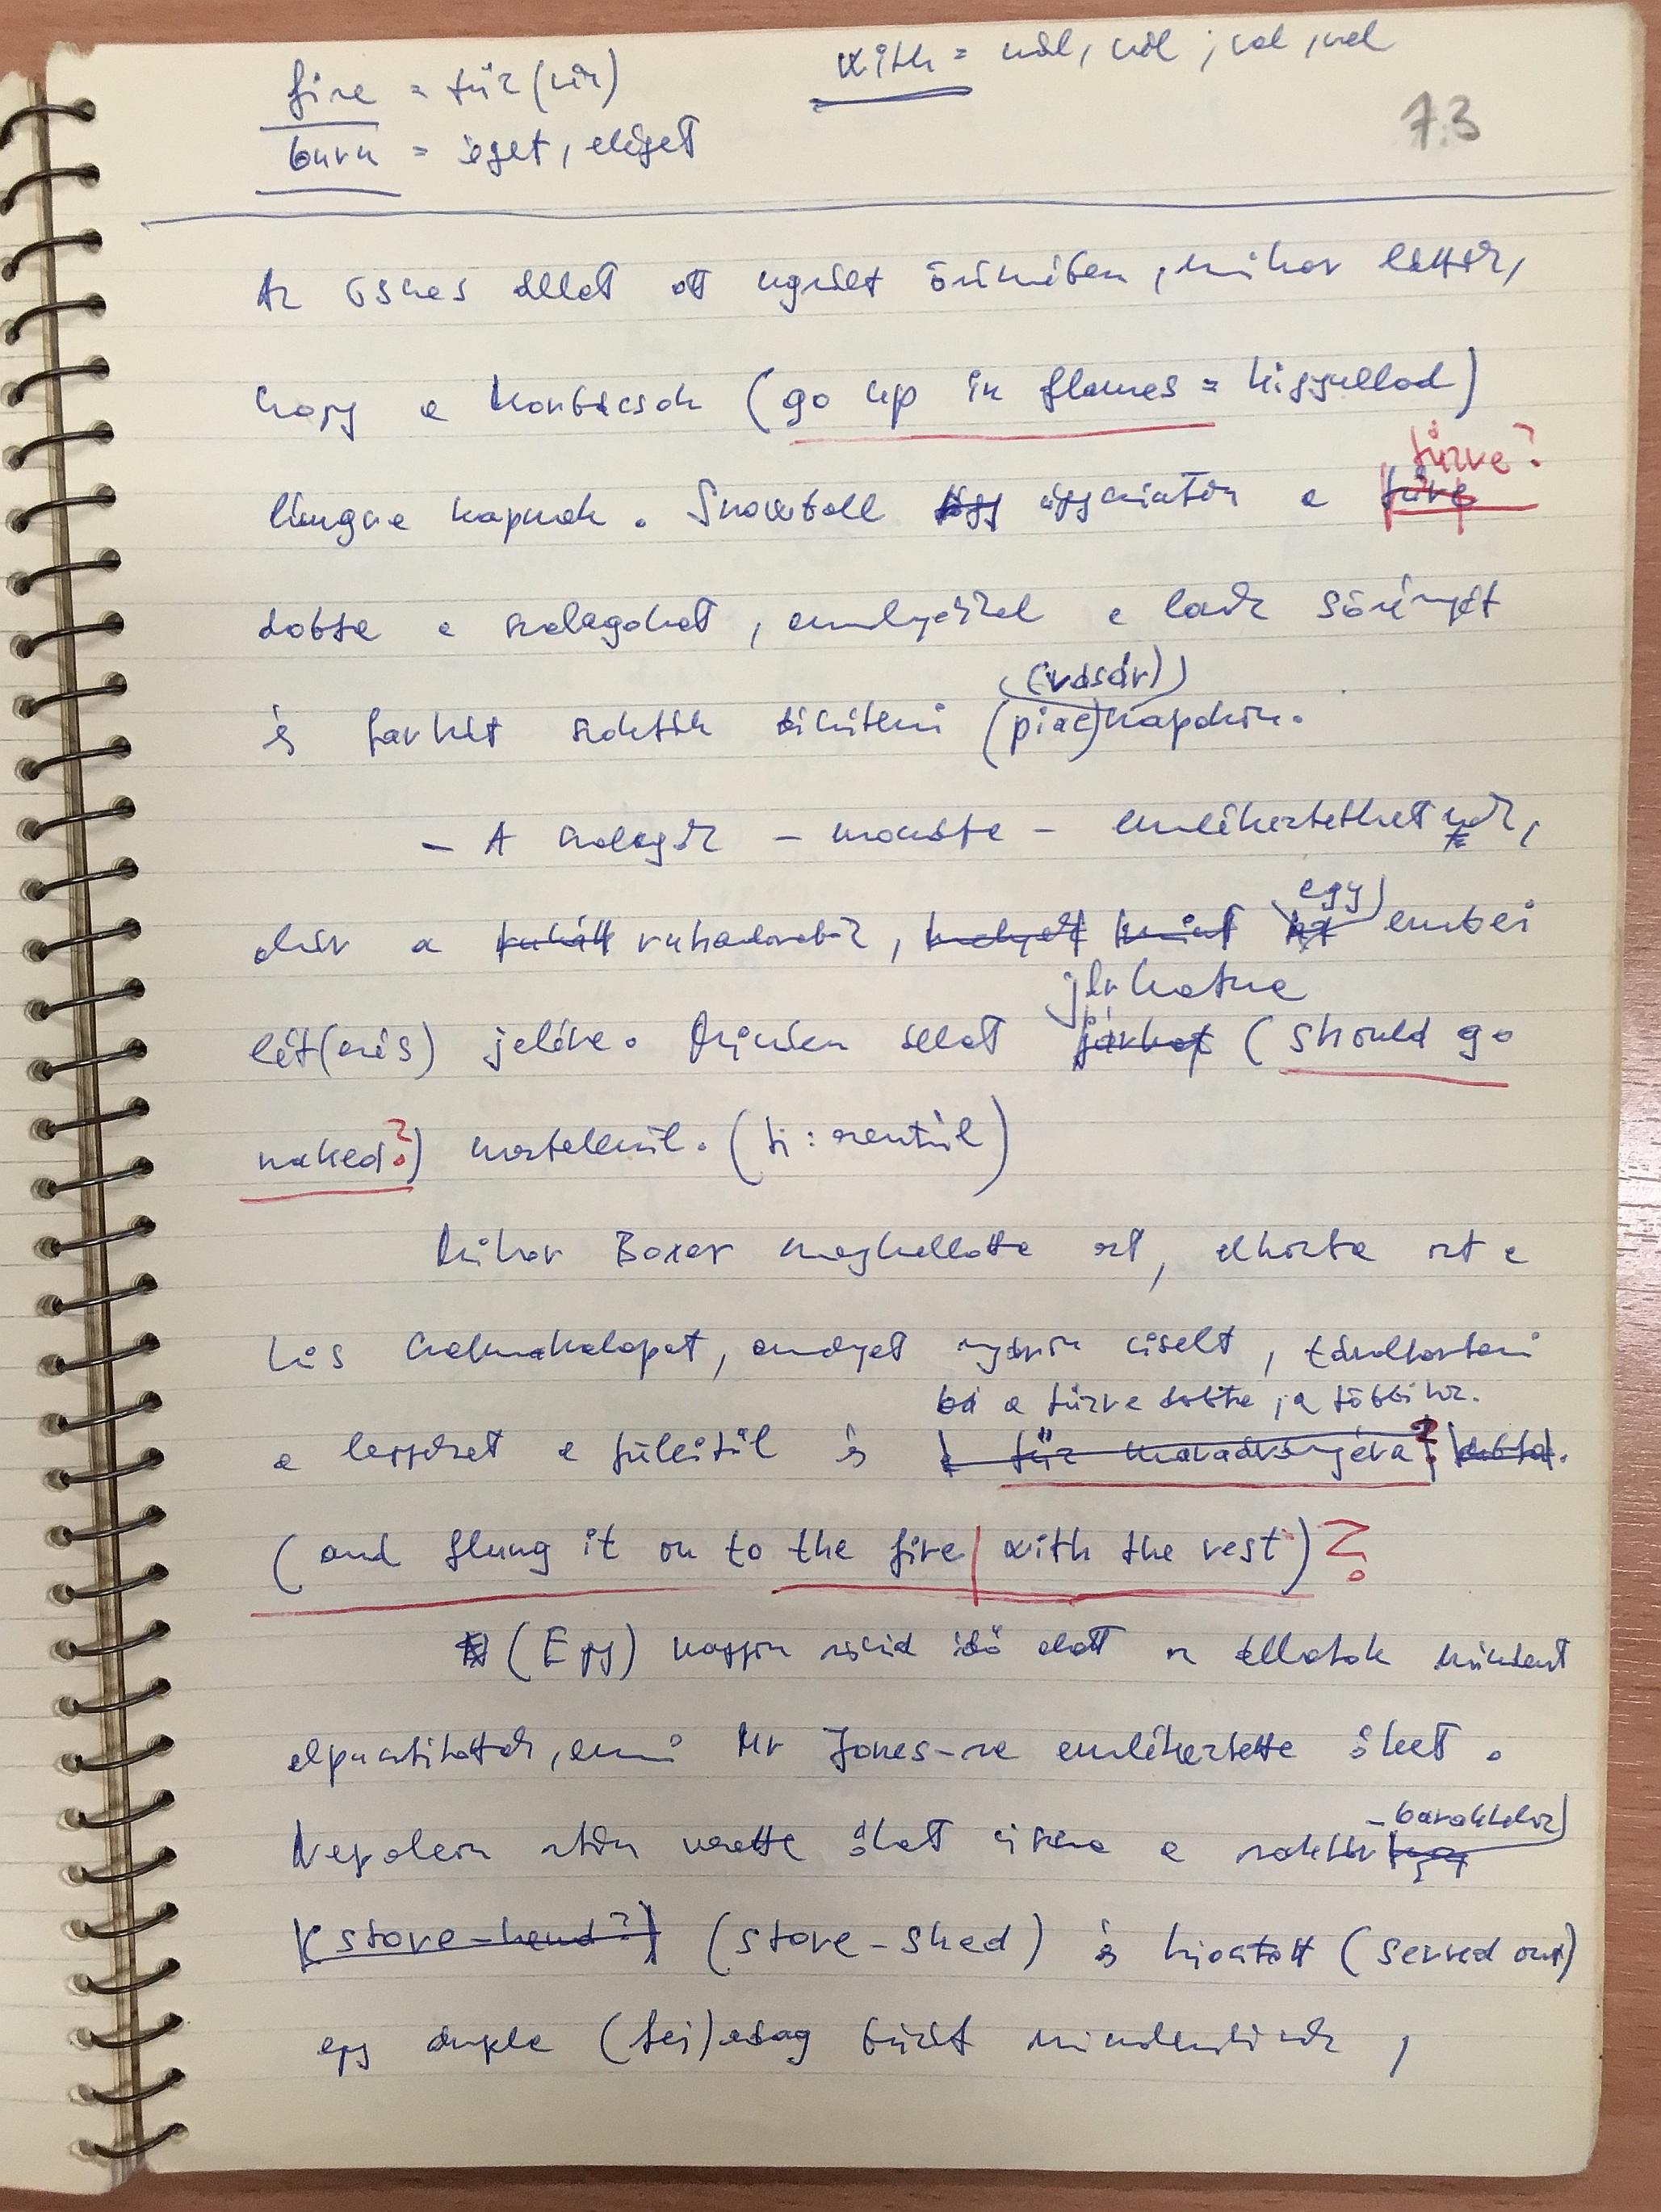 fire = tűz(vér)
with = nál, nél ; val, vel
burn = éget, eléget
7.3
Az összes állat ott ugrált örömében, mikor látták,
hogy a korbácsok (go up in flames = kigyullad)
lángra kapnak. Snowball úgyszintén a tűzre?
dobta a szalagokat, amelyekkel a lovak sörényét
és farkát szokták díszíteni (piac) (vásár) napokon.
– A szalagok – mondta – emlékeztethetnek,
akár a ruhadarabok, egy emberi
lét(ezés) jelére. Minden állat járhatna (should go
naked?) meztelenül. (ti: ruhátlanul)
Mikor Boxer meghallotta ezt, elhozta azt a
kis szalmakalapot, amelyet nyáron viselt, távoltartani
a legyeket a füleitől és a tűzre dobta, a többihez.
(and flung it on to the fire with the rest)?
(Egy) nagyon rövid idő alatt az állatok mindent
elpusztítottak, ami Mr Jones-ra emlékeztette őket.
Napoleon aztán vezette őket vissza a raktár-barakkhoz
(store-shed) és kiosztott (served out)
egy dupla (fej)adag búzát mindenkinek,